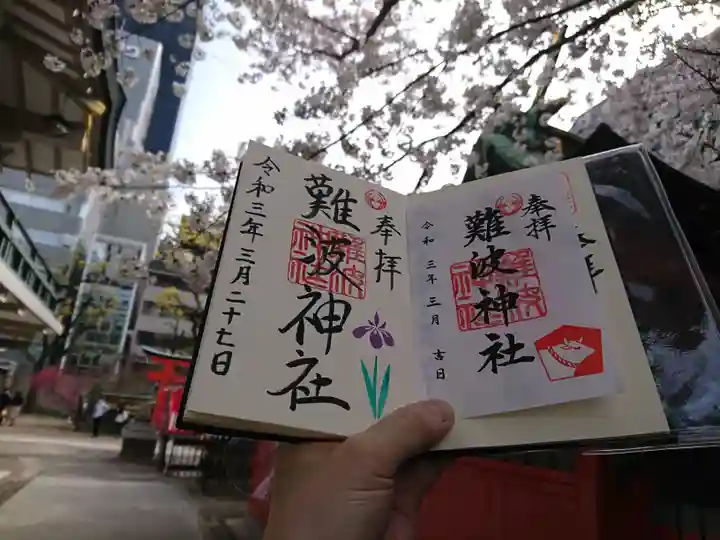 奉拝
難波神社
令和三年三月二十七日
奉拝
難波神社
令和三年三月 吉日